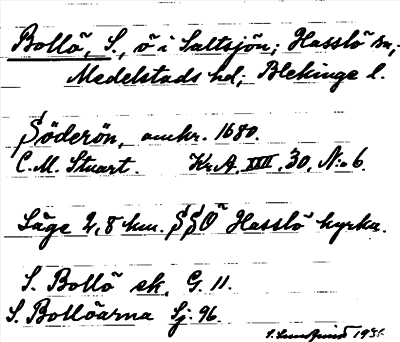 Bollö, S., ö i Saltsjön; Hasslö sn,
Medelstads hd; Blekinge l.
Söderön, omkr. 1680.
C. M. Stuart. Kr.A. XXIII, 30, N:o 6.
Läge 2,8 km. SSO Hasslö kyrka.
S. Bollö ek. G. 11.
S. Bollöarna Sj. 96.